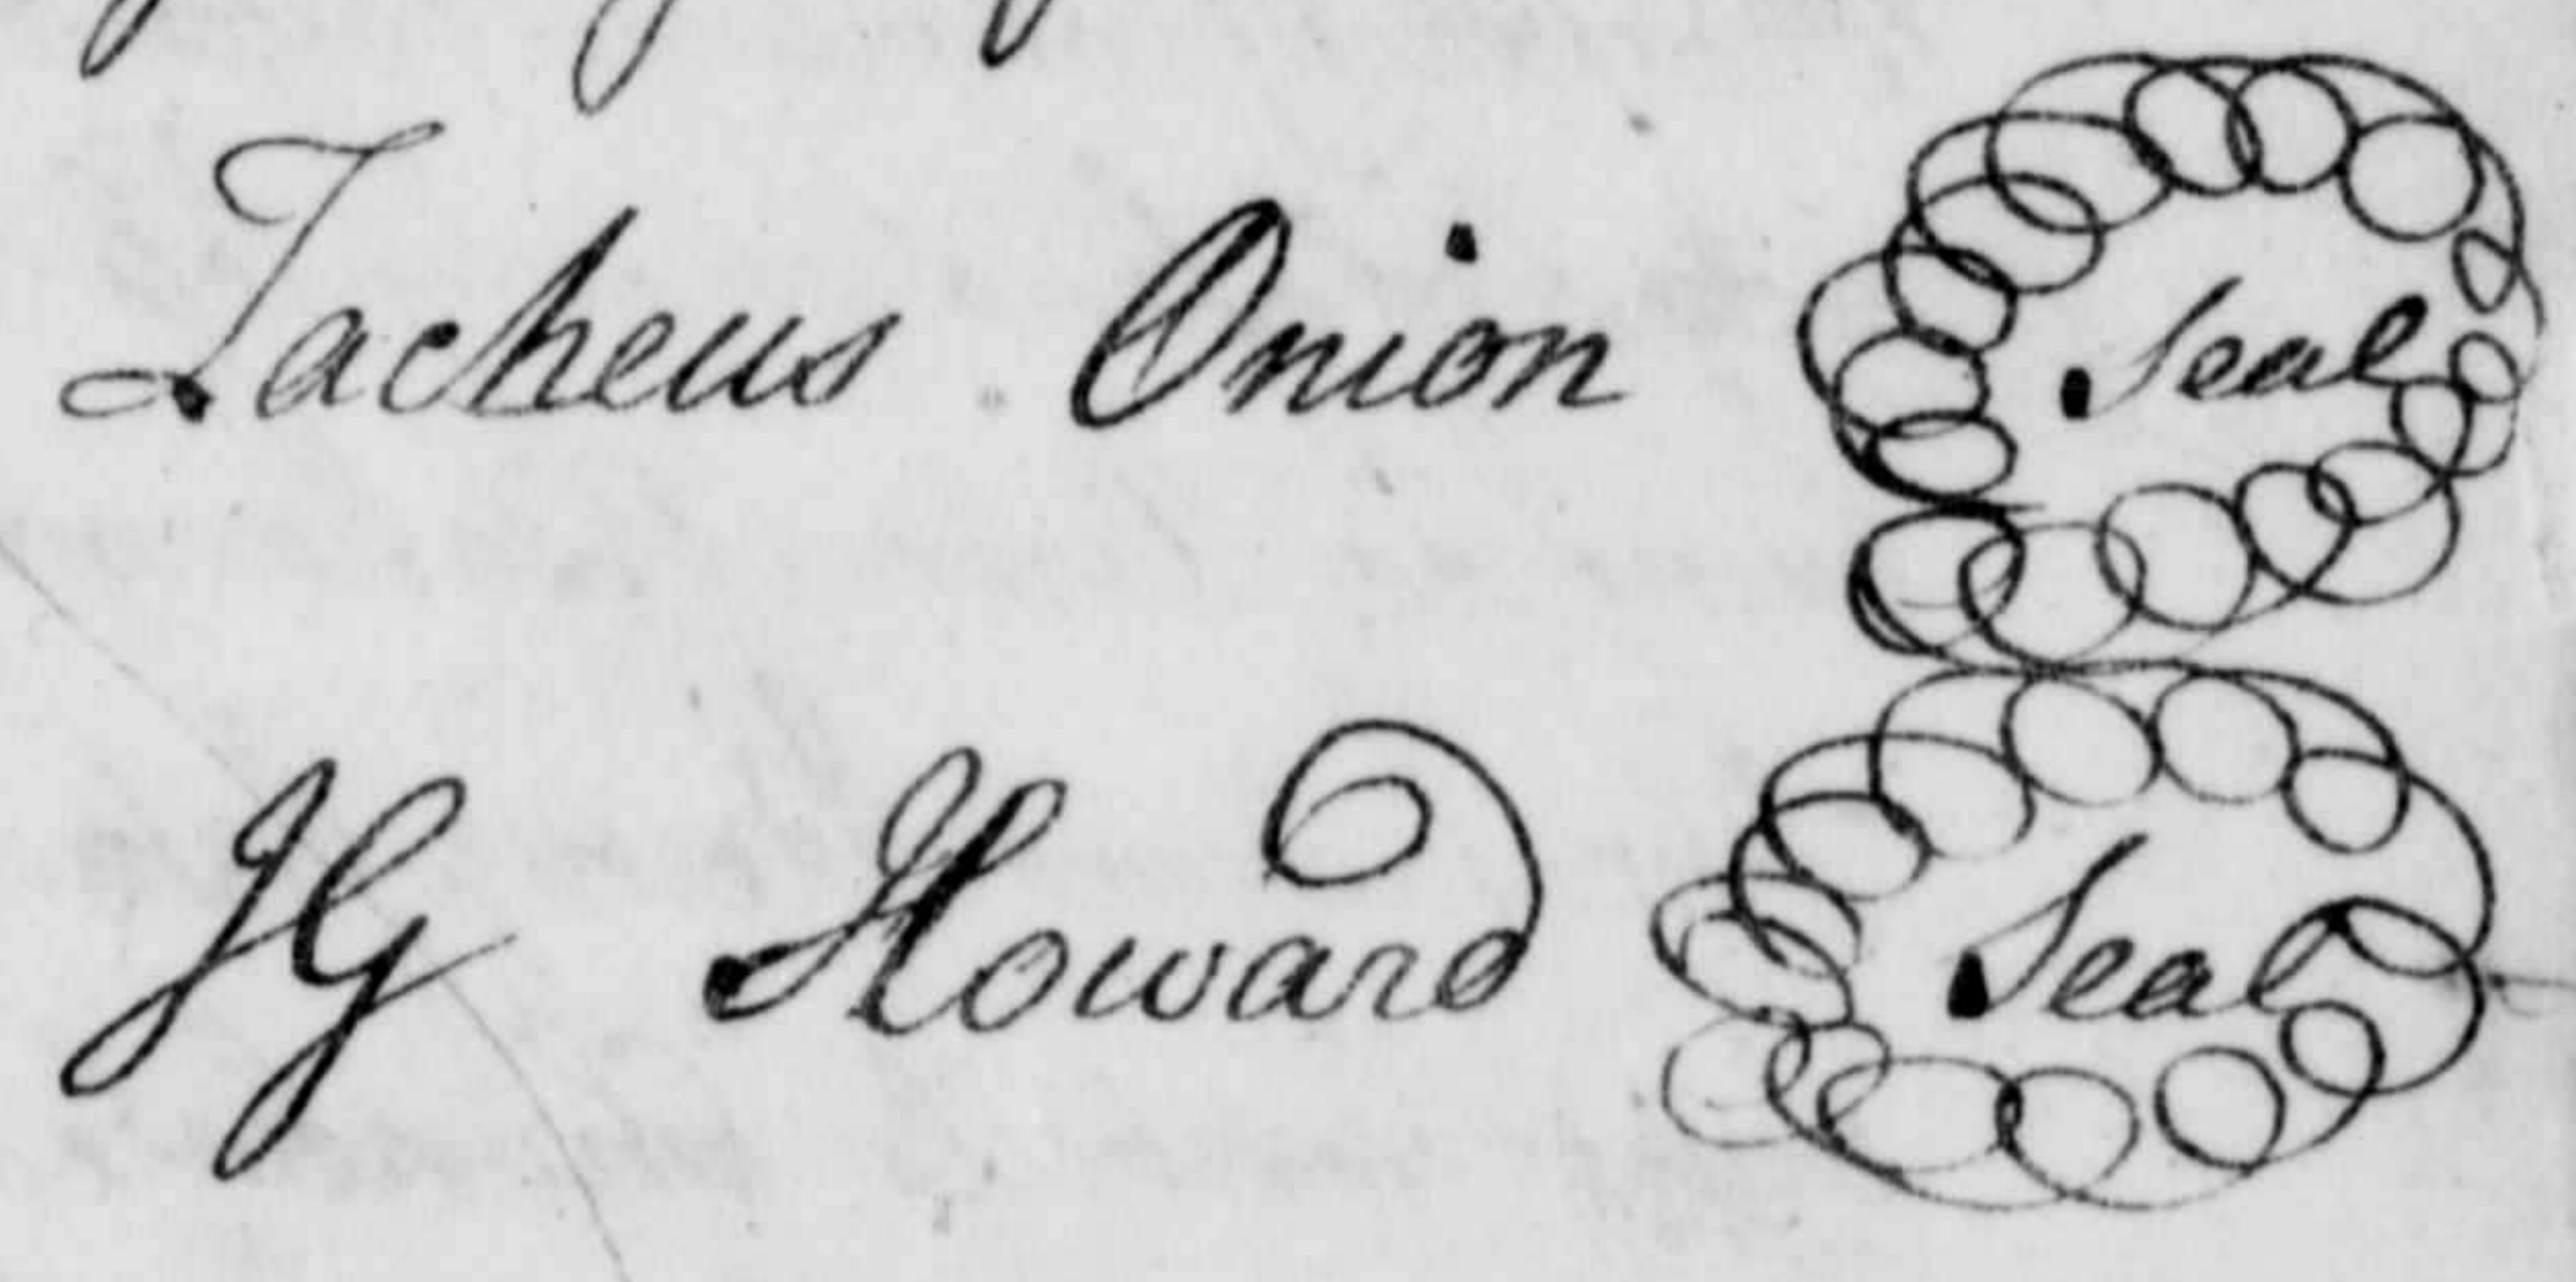 Zacheus Onion Seal
JG Howard Seal